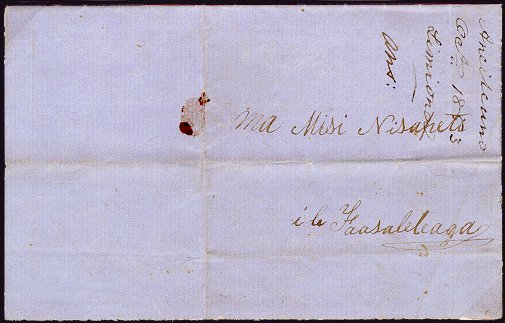 Ma Misi Nisapeto
i le Faasaleleaga
Aneiteum
Oct 1863
Simiona
Ans: